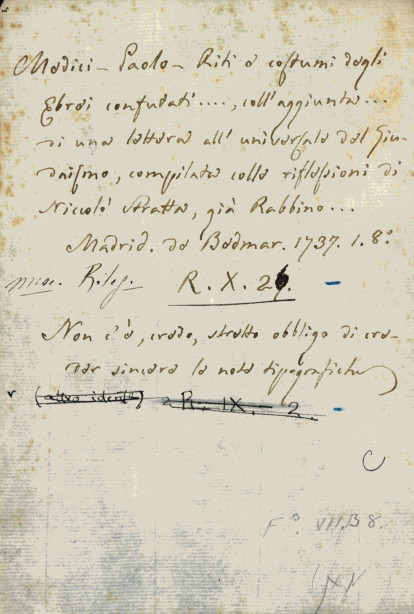 Medici - Paolo - Riti e costumi degli
Ebrei confutati...., coll'aggiunta...
di una lettera all'universale del Giu-
daismo, compilata colle riflessioni di
Niccolò Stratta, già Rabbino...
Madrid. de Bodmar. 1737. 1. 8º
misc. Rileg. R. X. 26. -
Non c'è, credo, stretto obbligo di cre-
der sincere le note tipografiche
(altro idente) R. IX. - 2. -
Fº VII.B 8.